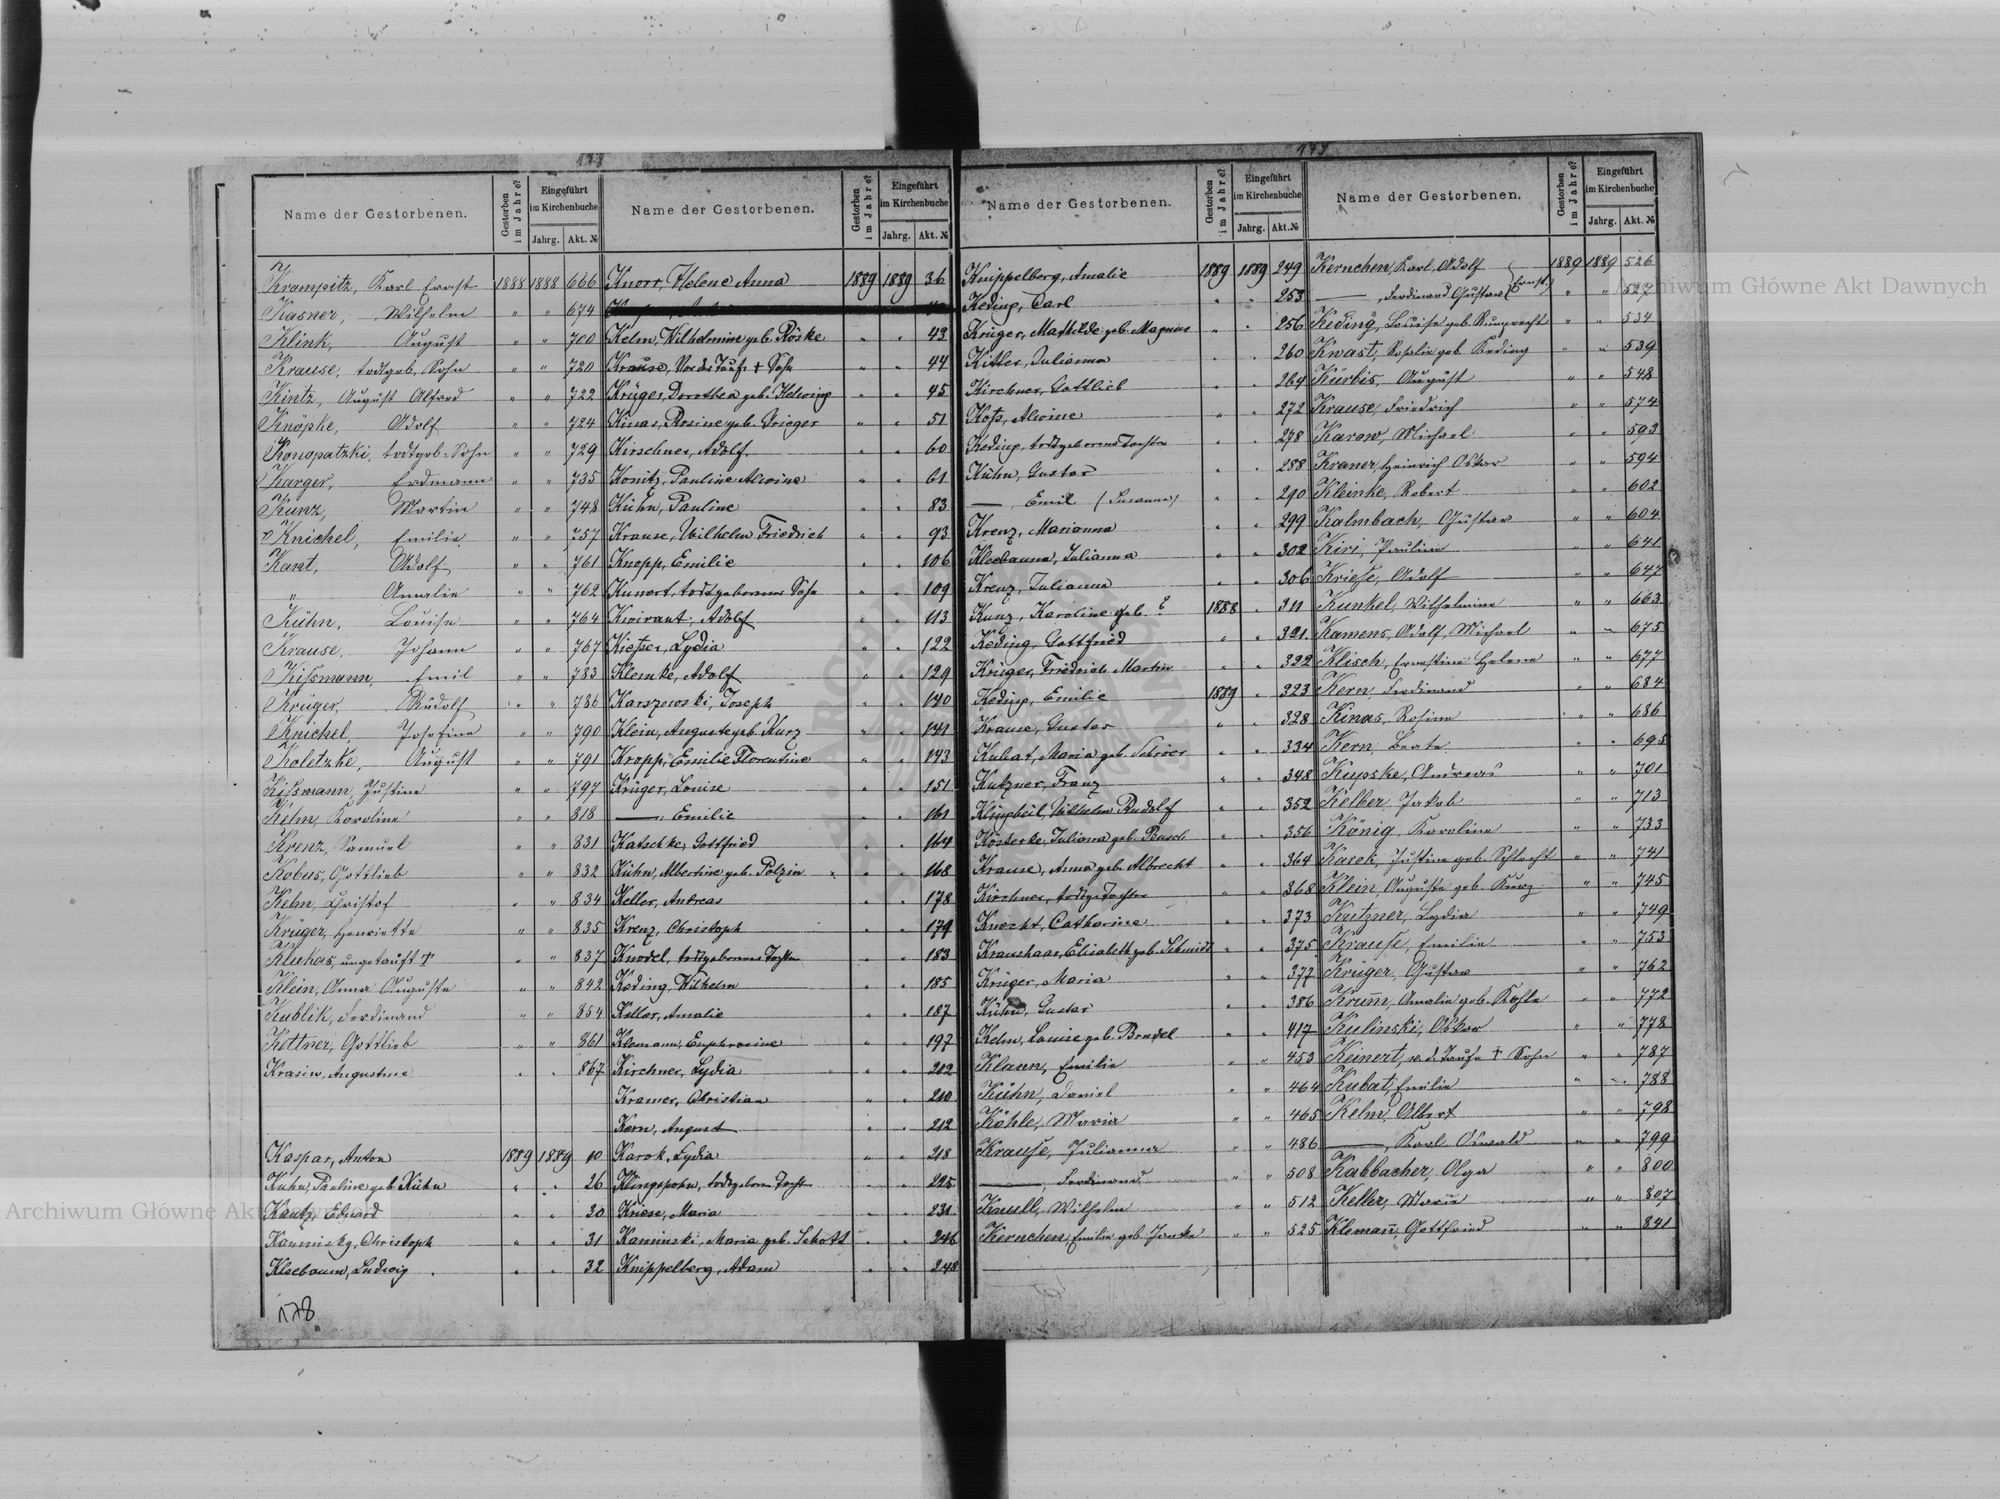 178
Name der Gestorbenen.
Gestorben im Jahre?
Eingeführt im Kirchenbuche
Jahrg. Akt. №
Krampitz, Karl Ernst 1888 1888 666
Kasner, Wilhelm " " 674
Klink, August " " 700
Krause, todtgeb. Sohn " " 720
Kintz, August Alfred " " 722
Knöpke, Adolf " " 724
Konopatzki, todtgeb. Sohn " " 729
Karger, Erdmann " " 735
Kunz, Martin " " 748
Knichel, Emilie " " 757
Kant, Adolf " " 761
" Amalie " " 762
Kühn, Louise " " 764
Krause, Johann " " 767
Kissmann, Emil " " 783
Krüger, Rudolf " " 786
Knichel, Josefine " " 790
Koletzke, August " " 791
Kissmann, Justine " " 797
Kelm, Karoline " " 818
Krenz, Samuel " " 831
Kobus, Gottlieb " " 832
Kelm, Christof " " 834
Krüger, Henriette " " 835
Klukas, ungetauft † " " 837
Klein, Anna Auguste " " 842
Kublik, Ferdinand " " 854
Kettner, Gottlieb " " 861
Krasin, Augustine " " 867
Kaspar, Anton 1889 1889 10
Kuhn, Pauline geb. Kühn " " 26
Kautz, Eduard " " 30
Kaminsky, Christoph " " 31
Kleebaum, Ludwig " " 32
178
Name der Gestorbenen.
Gestorben im Jahre?
Eingeführt im Kirchenbuche
Jahrg. Akt. №
Knorr, Helene Anna 1889 1889 36
Kelm, Wilhelmine geb. Röske " " 43
Krause, Vor der Taufe † Sohn " " 44
Krüger, Dorothea geb. Helwing " " 45
Kinas, Rosine geb. " " 51
Kirschner, Adolf " " 60
Konitz, Pauline Alwine " " 61
Kühn, Pauline " " 83
Krause, Wilhelm Friedrich " " 93
Knopp, Emilie " " 106
Kunert, todtgeborener Sohn " " 109
Kwirant, Adolf " " 113
Kieper, Lydia " " 122
Klemke, Adolf " " 129
Karszewski, Joseph " " 140
Klein, Auguste geb. Kurz " " 141
Kropp, Emilie Florentine " " 143
Krüger, Louise " " 151
—, Emilie " " 161
Katschke, Gottfried " " 164
Kühn, Albertine geb. Polzin " " 168
Keller, Andreas " " 178
Krenz, Christoph " " 179
Knodel, todtgeborene Tochter " " 183
Keding, Wilhelm " " 185
Keller, Amalie " " 187
Klemann, Euphrosine " " 197
Kirchner, Lydia " " 202
Kramer, Christian " " 210
Kern, August " " 212
Karok, Lydia " " 218
Klingspohn, todtgeborene Tochter " " 225
Kriese, Maria " " 231
Kaminski, Maria geb. Schott " " 246
Knippelberg, Adam " " 248
179
Name der Gestorbenen.
Gestorben im Jahre?
Eingeführt im Kirchenbuche
Jahrg. Akt. №
Knippelberg, Amalie 1889 1889 249
Keding, Carl " " 253
Krüger, Mathilde geb. Magnus " " 256
Kittler, Julianna " " 260
Kirchner, Gottlieb " " 269
Kotz, Alwine " " 272
Keding, todtgeborene Tochter " " 278
Kühn, Gustav " " 288
—, Emil (Susanna) " " 290
Krenz, Marianna " " 299
Kleebaum, Julianna " " 302
Krenz, Julianna " " 306
Kunz, Karoline geb. ? 1888 " 311
Keding, Gottfried " " 321
Krüger, Friedrich Martin " " 322
Keding, Emilie 1889 " 323
Krause, Gustav " " 328
Kubat, Maria geb. Schröer " " 334
Kutzner, Franz " " 348
Klingbeil, Wilhelm Rudolf " " 352
Kösterke, Juliana geb. Busch " " 356
Krause, Anna geb. Albrecht " " 364
Kirchner, todtg. Tochter " " 368
Knecht, Catharine " " 373
Kraushaar, Elisabeth geb. Schmidt " " 375
Krüger, Maria " " 377
Kühn, Gustav " " 386
Kelm, Louise geb. Bredel " " 417
Klann, Emilie " " 453
Kühn, Daniel " " 464
Köhle, Maria " " 465
Krause, Julianna " " 486
—, Ferdinand " " 508
Knull, Wilhelm " " 512
Kernchen, Emilie geb. " " 525
Name der Gestorbenen.
Gestorben im Jahre?
Eingeführt im Kirchenbuche
Jahrg. Akt. №
Kernchen, Karl Adolf 1889 1889 526
—, Ferdinand Gustav (Ernst) " " 527
Keding, Louise geb. Rumprecht " " 534
Kwast, Rosalie geb. Keding " " 539
Kürbis, August " " 548
Krause, Friedrich " " 574
Karow, Michael " " 593
Kraner, Heinrich Oskar " " 594
Kleinke, Robert " " 602
Kalmbach, Gustav " " 604
Kiri, Pauline " " 641
Kriese, Adolf " " 647
Kunkel, Wilhelmine " " 663
Kamens, Adolf Michael " " 675
Klisch, Ernestine Helene " " 677
Kern, Ferdinand " " 684
Kinas, Rosine " " 686
Kern, Beate " " 695
Kupske, Andreas " " 701
Kelber, Jakob " " 713
König, Karoline " " 733
Karek, Justine geb. Schlecht " " 741
Klein, Auguste geb. Kurz " " 745
Kutzner, Lydia " " 749
Krause, Emilie " " 753
Krüger, Gustav " " 762
Krum̄, Amalie geb. Kohls " " 772
Kulinski, Oskar " " 778
Keinert, v. d. Taufe † Sohn " " 787
Kubat, Emilie " " 788
Kelm, Albert " " 798
—, Karl Oswald " " 799
Kabbacher, Olga " " 800
Keller, Marie " " 807
Kleman̄, Gottfried " " 841
Archiwum Główne Akt Dawnych
Archiwum Główne Akt Dawnych